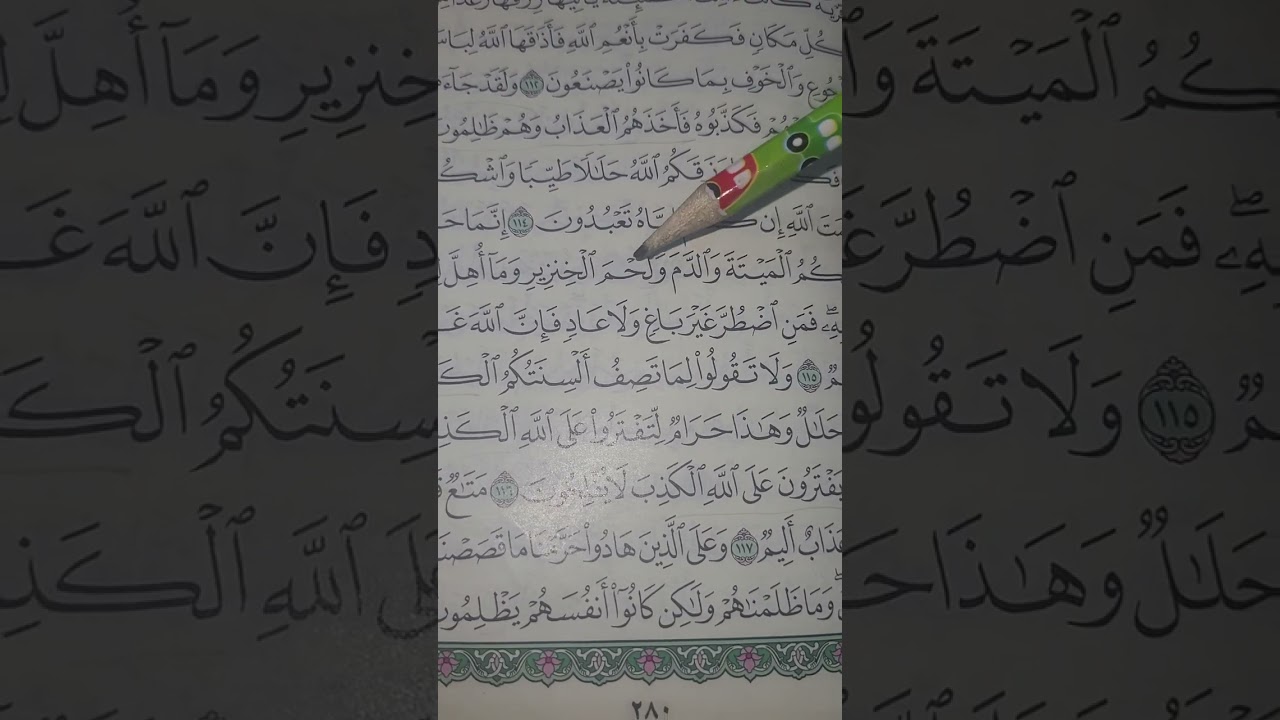 كُلِّ مَكَانٍ فَكَفَرَتْ بِأَنْعُمِ ٱللَّهِ فَأَذَٰقَهَا ٱللَّهُ لِبَاسَ
وَٱلْخَوْفِ بِمَا كَانُوا۟ يَصْنَعُونَ ١١٢ وَلَقَدْ جَآءَ
فَكَذَّبُوهُ فَأَخَذَهُمُ ٱلْعَذَابُ وَهُمْ ظَٰلِمُونَ
ٱللَّهُ حَلَٰلًا طَيِّبًا وَٱشْكُ
ٱللَّهِ إِن تَعْبُدُونَ ١١٤ إِنَّمَا حَ
كُمُ ٱلْمَيْتَةَ وَٱلدَّمَ وَلَحْمَ ٱلْخِنزِيرِ وَمَآ أُهِلَّ لِ
بِهِۦ ۖ فَمَنِ ٱضْطُرَّ غَيْرَ بَاغٍ وَلَا عَادٍ فَإِنَّ ٱللَّهَ غَ
مٌ ١١٥ وَلَا تَقُولُوا۟ لِمَا تَصِفُ أَلْسِنَتُكُمُ ٱلْكَ
حَلَٰلٌ وَهَٰذَا حَرَامٌ لِّتَفْتَرُوا۟ عَلَى ٱللَّهِ ٱلْكَذِ
يَفْتَرُونَ عَلَى ٱللَّهِ ٱلْكَذِبَ لَا يُفْلِحُونَ ١١٦ مَتَٰعٌ قَ
عَذَابٌ أَلِيمٌ ١١٧ وَعَلَى ٱلَّذِينَ هَادُوا۟ حَرَّمْنَا مَا قَصَصْنَا
وَمَا ظَلَمْنَٰهُمْ وَلَٰكِن كَانُوٓا۟ أَنفُسَهُمْ يَظْلِمُونَ
٢٨٠